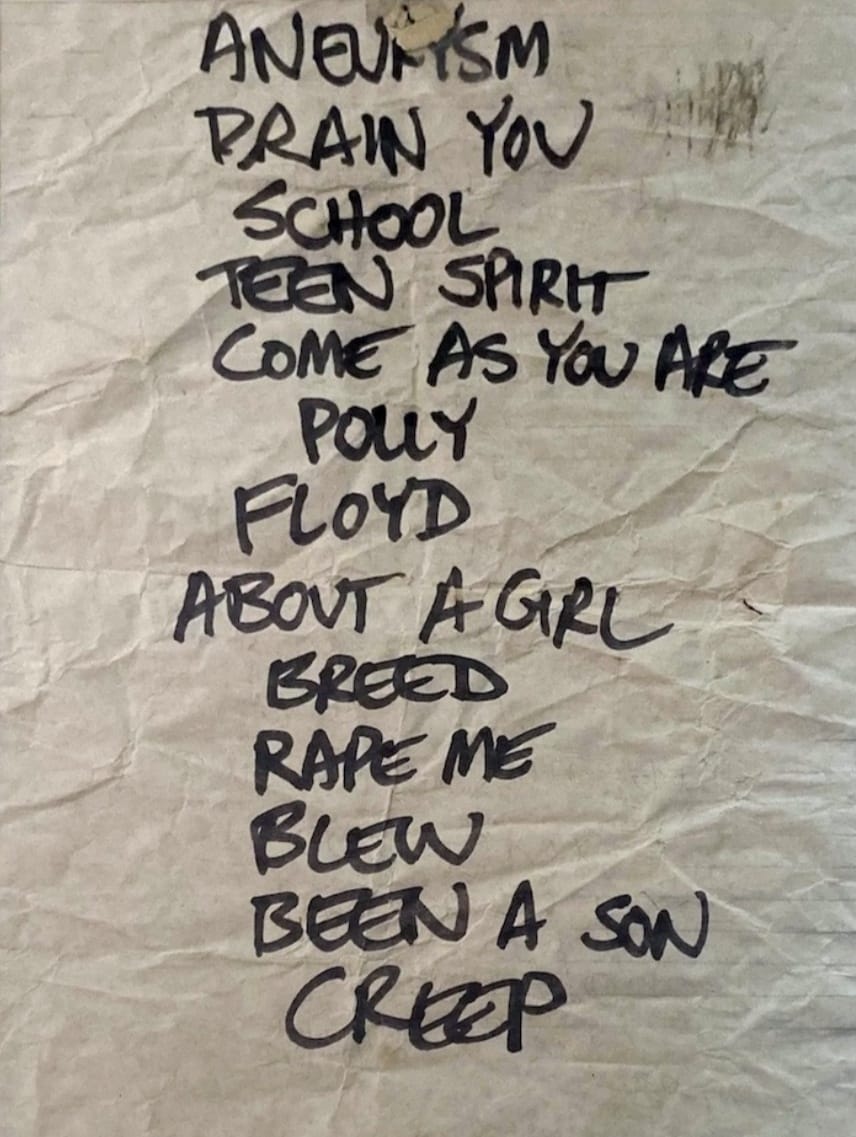 ANEURYSM
DRAIN YOU
SCHOOL
TEEN SPIRIT
COME AS YOU ARE
POLLY
FLOYD
ABOUT A GIRL
BREED
RAPE ME
BLEW
BEEN A SON
CREEP